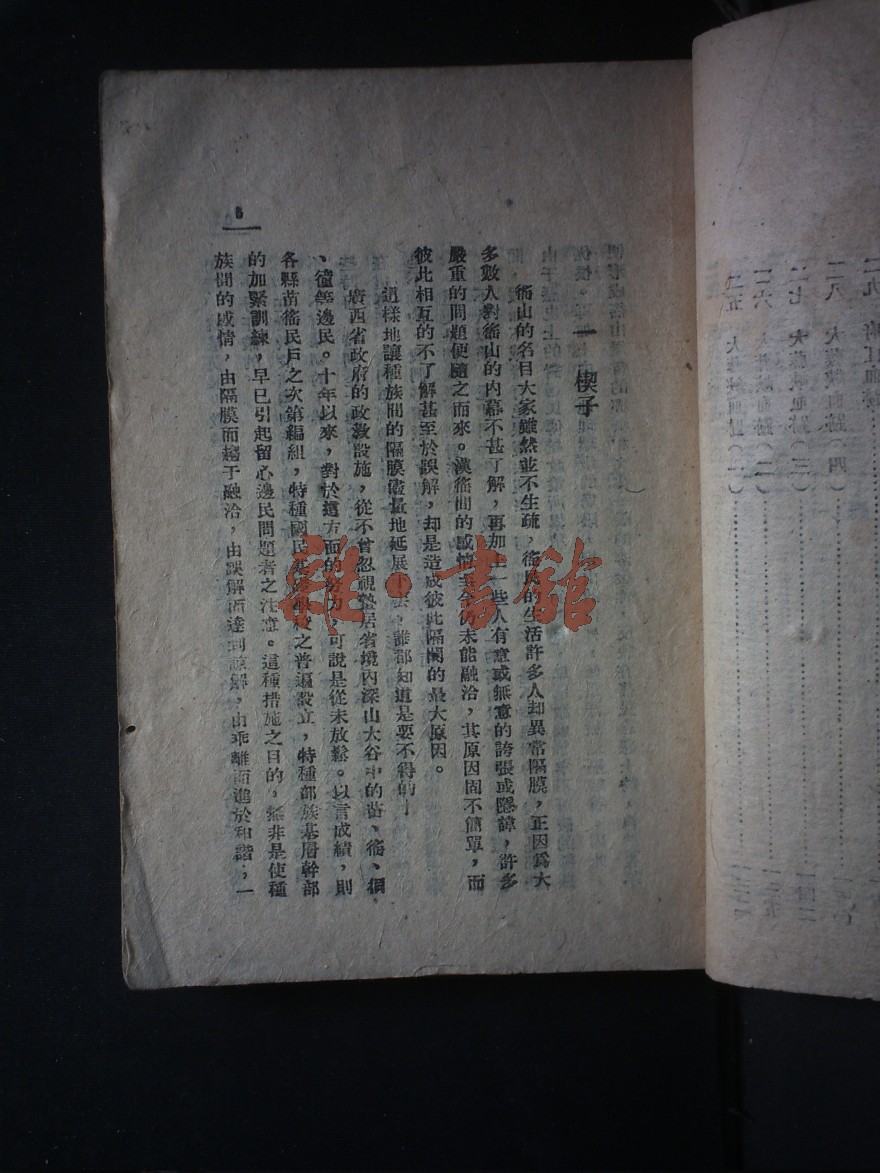 一 楔子
徭山的名目大家雖然並不生疏，徭民的生活許多人却異常隔膜，正因爲大
多數人對徭山的內幕不甚了解，再加上一些人有意或無意的誇張或隱諱，許多
嚴重的問題便隨之而來。漢徭間的感情至今仍未能融洽，其原因固不簡單，而
彼此相互的不了解甚至於誤解，却是造成彼此隔閡的最大原因。
這樣地讓種族間的隔膜儘量地延展下去，誰都知道是要不得的！
廣西省政府的政教設施，從不曾忽視蟄居省境內深山大谷中的苗、徭、侗
、僮等邊民。十年以來，對於這方面的努力，可說是從未放鬆。以言成績，則
各縣苗徭民戶之次第編組，特種國民基礎學校之普遍設立，特種部族基層幹部
的加緊訓練，早已引起留心邊民問題者之注意。這種措施之目的，無非是使種
族間的感情，由隔膜而趨于融洽，由誤解而達到諒解，由乖離而進於和諧，一
雜·書館
二五 大
二六 大
二七 大
二八 大
二九